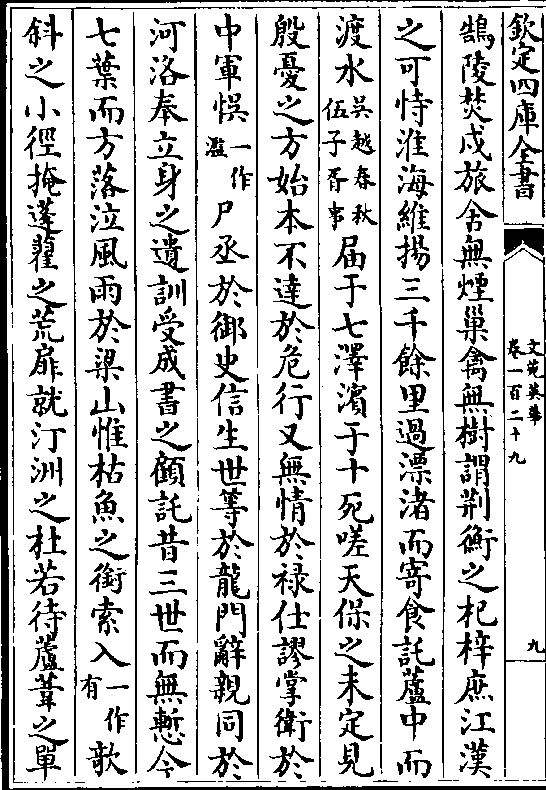 欽定四庫全書
文苑英華
卷一百二十九
九
鵠陵焚戍旅舎無煙巢禽無樹謂荆衡之杞梓庶江漢
之可恃淮海維揚三千餘里過漂渚而寄食託蘆中而
渡水吳越春秋伍子胥事届于七澤濱于十死嗟天保之未定見
殷憂之方始本不達於危行又無情於禄仕謬掌衛於
中軍悞一作濫尸丞於御史信生世等於龍門辭親同於
河洛奉立身之遺訓受成書之顧託昔三世而無慙今
七葉而方落泣風雨於梁山惟枯魚之銜索入一作有歌
斜之小徑掩蓬藋之荒扉就汀洲之杜若待蘆葦之單